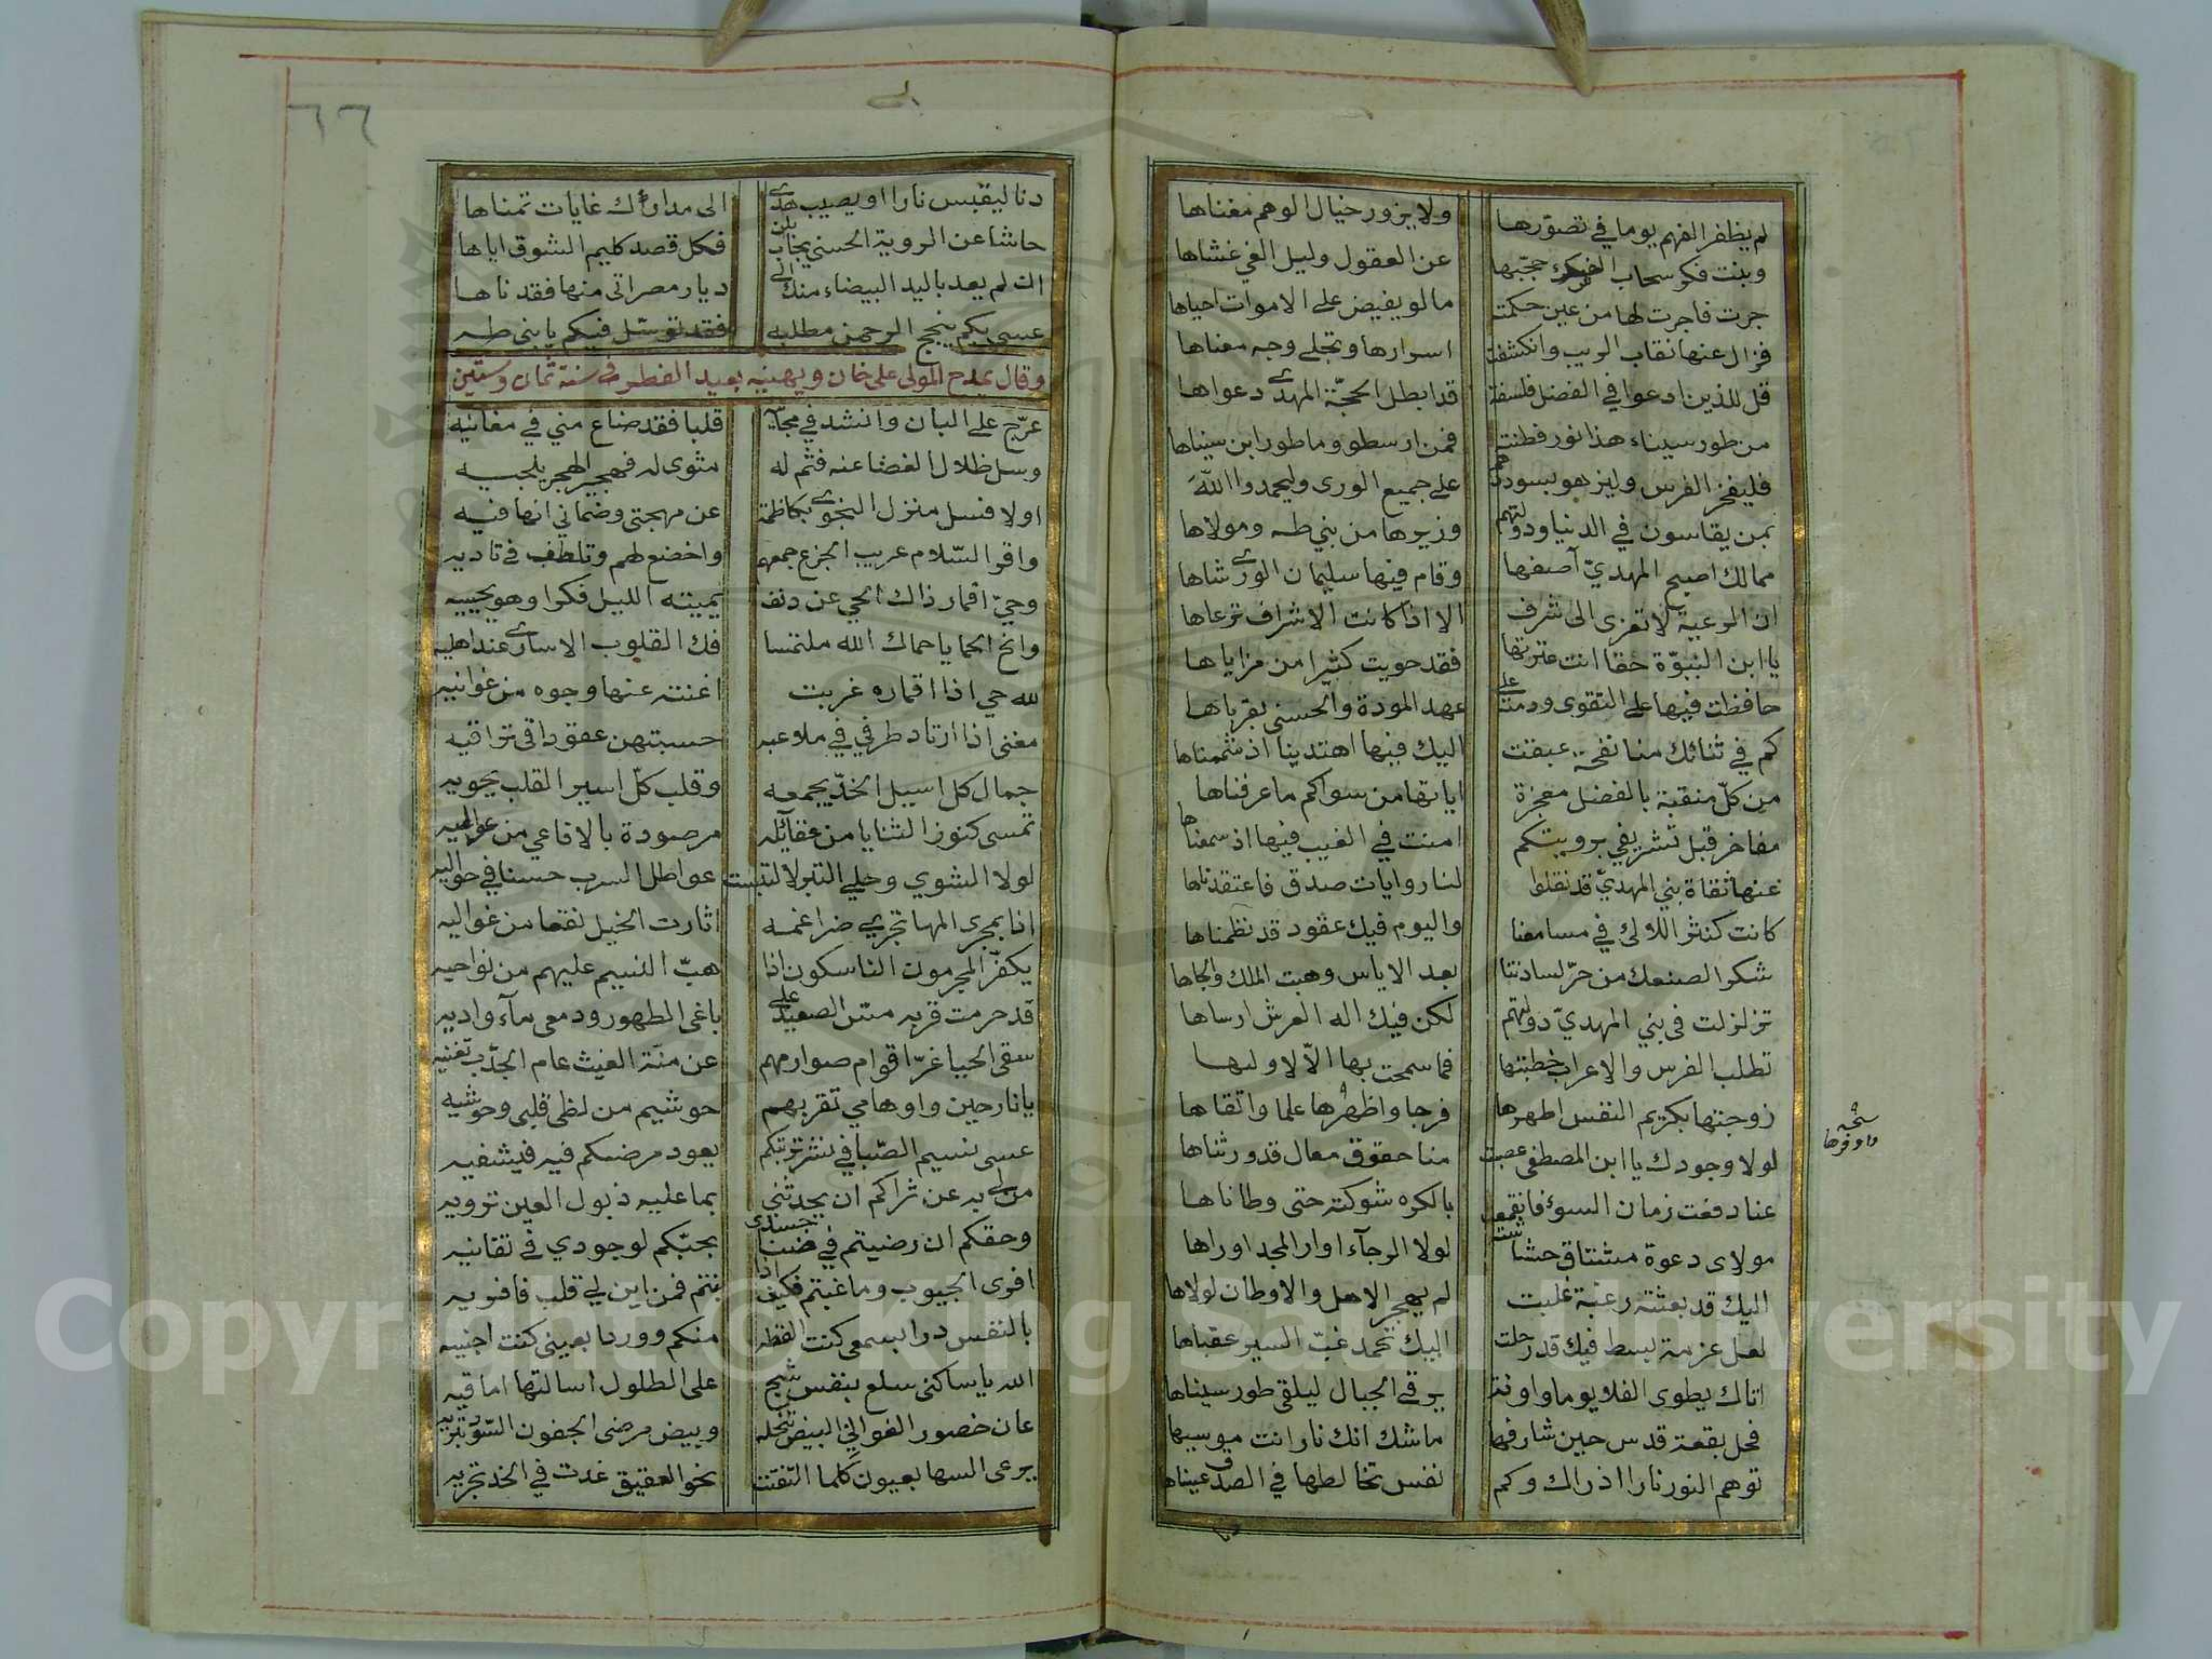 لم يظفر الفهم يوما في تصوّرها ولا يزور خيال الوهم مغناها
وبنت فكر سحاب حجّبها عن العقول وليل الغي غشاها
جرت فاجرت لها من عين حكمت ما لو يفيض على الاموات احياها
فزال عنها نقاب الريب وانكشفت اسرارها وتجلى وجه معناها
قل للذين ادعوا في الفضل فلسفة قد ابطل الحجّة المهدي دعواها
من طور سيناء هذا نور فطنته فمن ارسطو وما طور ابن سيناها
فليفخر الفرس وليزهو بسوددهم على جميع الورى وليحمدوا الله
بمن يقاسون في الدنيا ودولتهم وزيرها من بني طه ومولاها
ممالك اصبح المهديّ آصفها وقام فيها سليمان الورى شاها
ان الرعية لا تعزى الى شرف الا اذا كانت الاشراف ترعاها
يا ابن النبوّة حقا انت عترتها فقد حويت كثيرا من مزاياها
حافظت فيها على التقوى ودمت على عهد المودة والحسنى بقرباها
كم في ثنائك منا نفحة عبقت اليك فيها اهتدينا اذ شممناها
من كلّ منقبة بالفضل معجزة اياتها من سواكم ما عرفناها
مفاخر قبل تشريفي برويتكم امنت في الغيب فيها اذ سمعناها
عنها ثقاة بني المهديّ قد نقلوا لنا روايات صدق فاعتقدناها
كانت كنثر اللالئ في مسامعنا واليوم فيك عقود قد نظمناها
شكرا لصنعك من حرّ لسادتنا بعد الاياس وهبت الملك والجاها
تزلزلت في بني المهديّ دولتهم لكن فيك اله العرش ارساها
تطلب الفرس والاعراب خطبتها فما سمحت بها الّا لاولىها
زوجتها بكريم النفس اطهرها فرجا واظهرها علما واتقاها
نسخه
واوفرها
لولا وجودك يا ابن المصطفى غصبت منا حقوق معال قد ورثناها
عنا دفعت زمان السوء فانقمعت بالكره شوكته حتى وطاناها
مولاى دعوة مشتاق حشاشته لولا الرجآء اوار المجد اوراها
اليك قد بعثته رغبة غلبت لم يهجر الاهل والاوطان لولاها
لعل عزمة لبسط فيك قد رحلت اليك تحمد غبّ السير عقباها
اتاك يطوى الفلا يوما واونة يرقى الجبال ليلقى طور سيناها
فحل بقعة قدس حين شارفها ما شك انك نار انت موسيها
توهم النور نارا اذ راك وكم نفس تخالطها في الصدق عيناها
٦٦
دنا ليقبس نارا او يصيب هدى الى مدارك غايات تمناها
حاشا عن الروية الحسنى يجاب بلن فكل قصد كليم الشوق اياها
ان لم يعد باليد البيضاء منك الى ديار مصر اتى منها فقد ناها
عسى بكم ينجح الرحمن مطلبه فقد توسّل فيكم يا بنى طه
وقال يمدح المولى على خان ويهنيه بعيد الفطر في سنة ثمان وستين
عرّج على البان وانشد في مجآيه قلبا فقد ضاع مني في مغانيه
وسل ظلال الغضا عنه فثم له مثوى له فهجير الهجر يلجيه
اولا فسل منزل النجوى بكاظمة عن مهجتى وضماني انها فيه
واقر السّلام عريب الجزع جمعهم واخضع لهم وتلطف في تاديه
وحيّ اقمار ذاك الحي عن دنف يميته الليل فكرا وهو يحييه
وانح الحما يا حماك الله ملتمسا فك القلوب الاسارى عند اهليه
لله حي اذا اقماره غربت اغنته عنها وجوه من غوانيه
مغنى اذا ارتاد طرفي في ملاعبه حسبتهن عقودا في تراقيه
جمال كل اسيل الخدّ يجمعه وقلب كلّ اسير القلب يحويه
تمسى كنوز الثنايا من عقائله مرصودة بالافاعي من عواليه
لولا الشوي وحلي التبر لالتبست عواطل السرب حسنا في حواليه
اذا بمجرى المها تجري ضراغمه اثارت الخيل نقعا من غواليه
يكفّر المجرمون الناسكون اذا هبّ النسيم عليهم من نواحيه
قد حرمت قربه متن الصعيد على باغى الطهور ودمعى مآء واديه
سقى الحيا غرّ اقوام صوارمهم عن منّة الغيث عام الجدب تغنيه
يا نازحين واوهامي تقربهم حوشيم من لظى قلبى وحوشيه
عسى نسيم الصّبا في نشر تربتكم يعود مرضكم فيه فيشفيه
من لى به عن ثراكم ان يحدثني بما عليه ذبول العين ترويه
وحقكم ان رضيتم في ضنا جسدى بحبّكم لوجودي في تفانيه
افوى الجيوب وما غبتم فكيف اذا بنتم فمن اين لي قلب فافويه
بالنفس درا بسمعى كنت القطه منكم ووردا بعينى كنت اجنيه
الله يا ساكنى سلع بنفس شج على الطلول اسالتها اماقيه
عان خصور الغواني البيض تنحله وبيض مرضى الجفون السّود تبريه
يرعى السها بعيون كلما التفتت نحو العقيق غدت في الخد تجريه